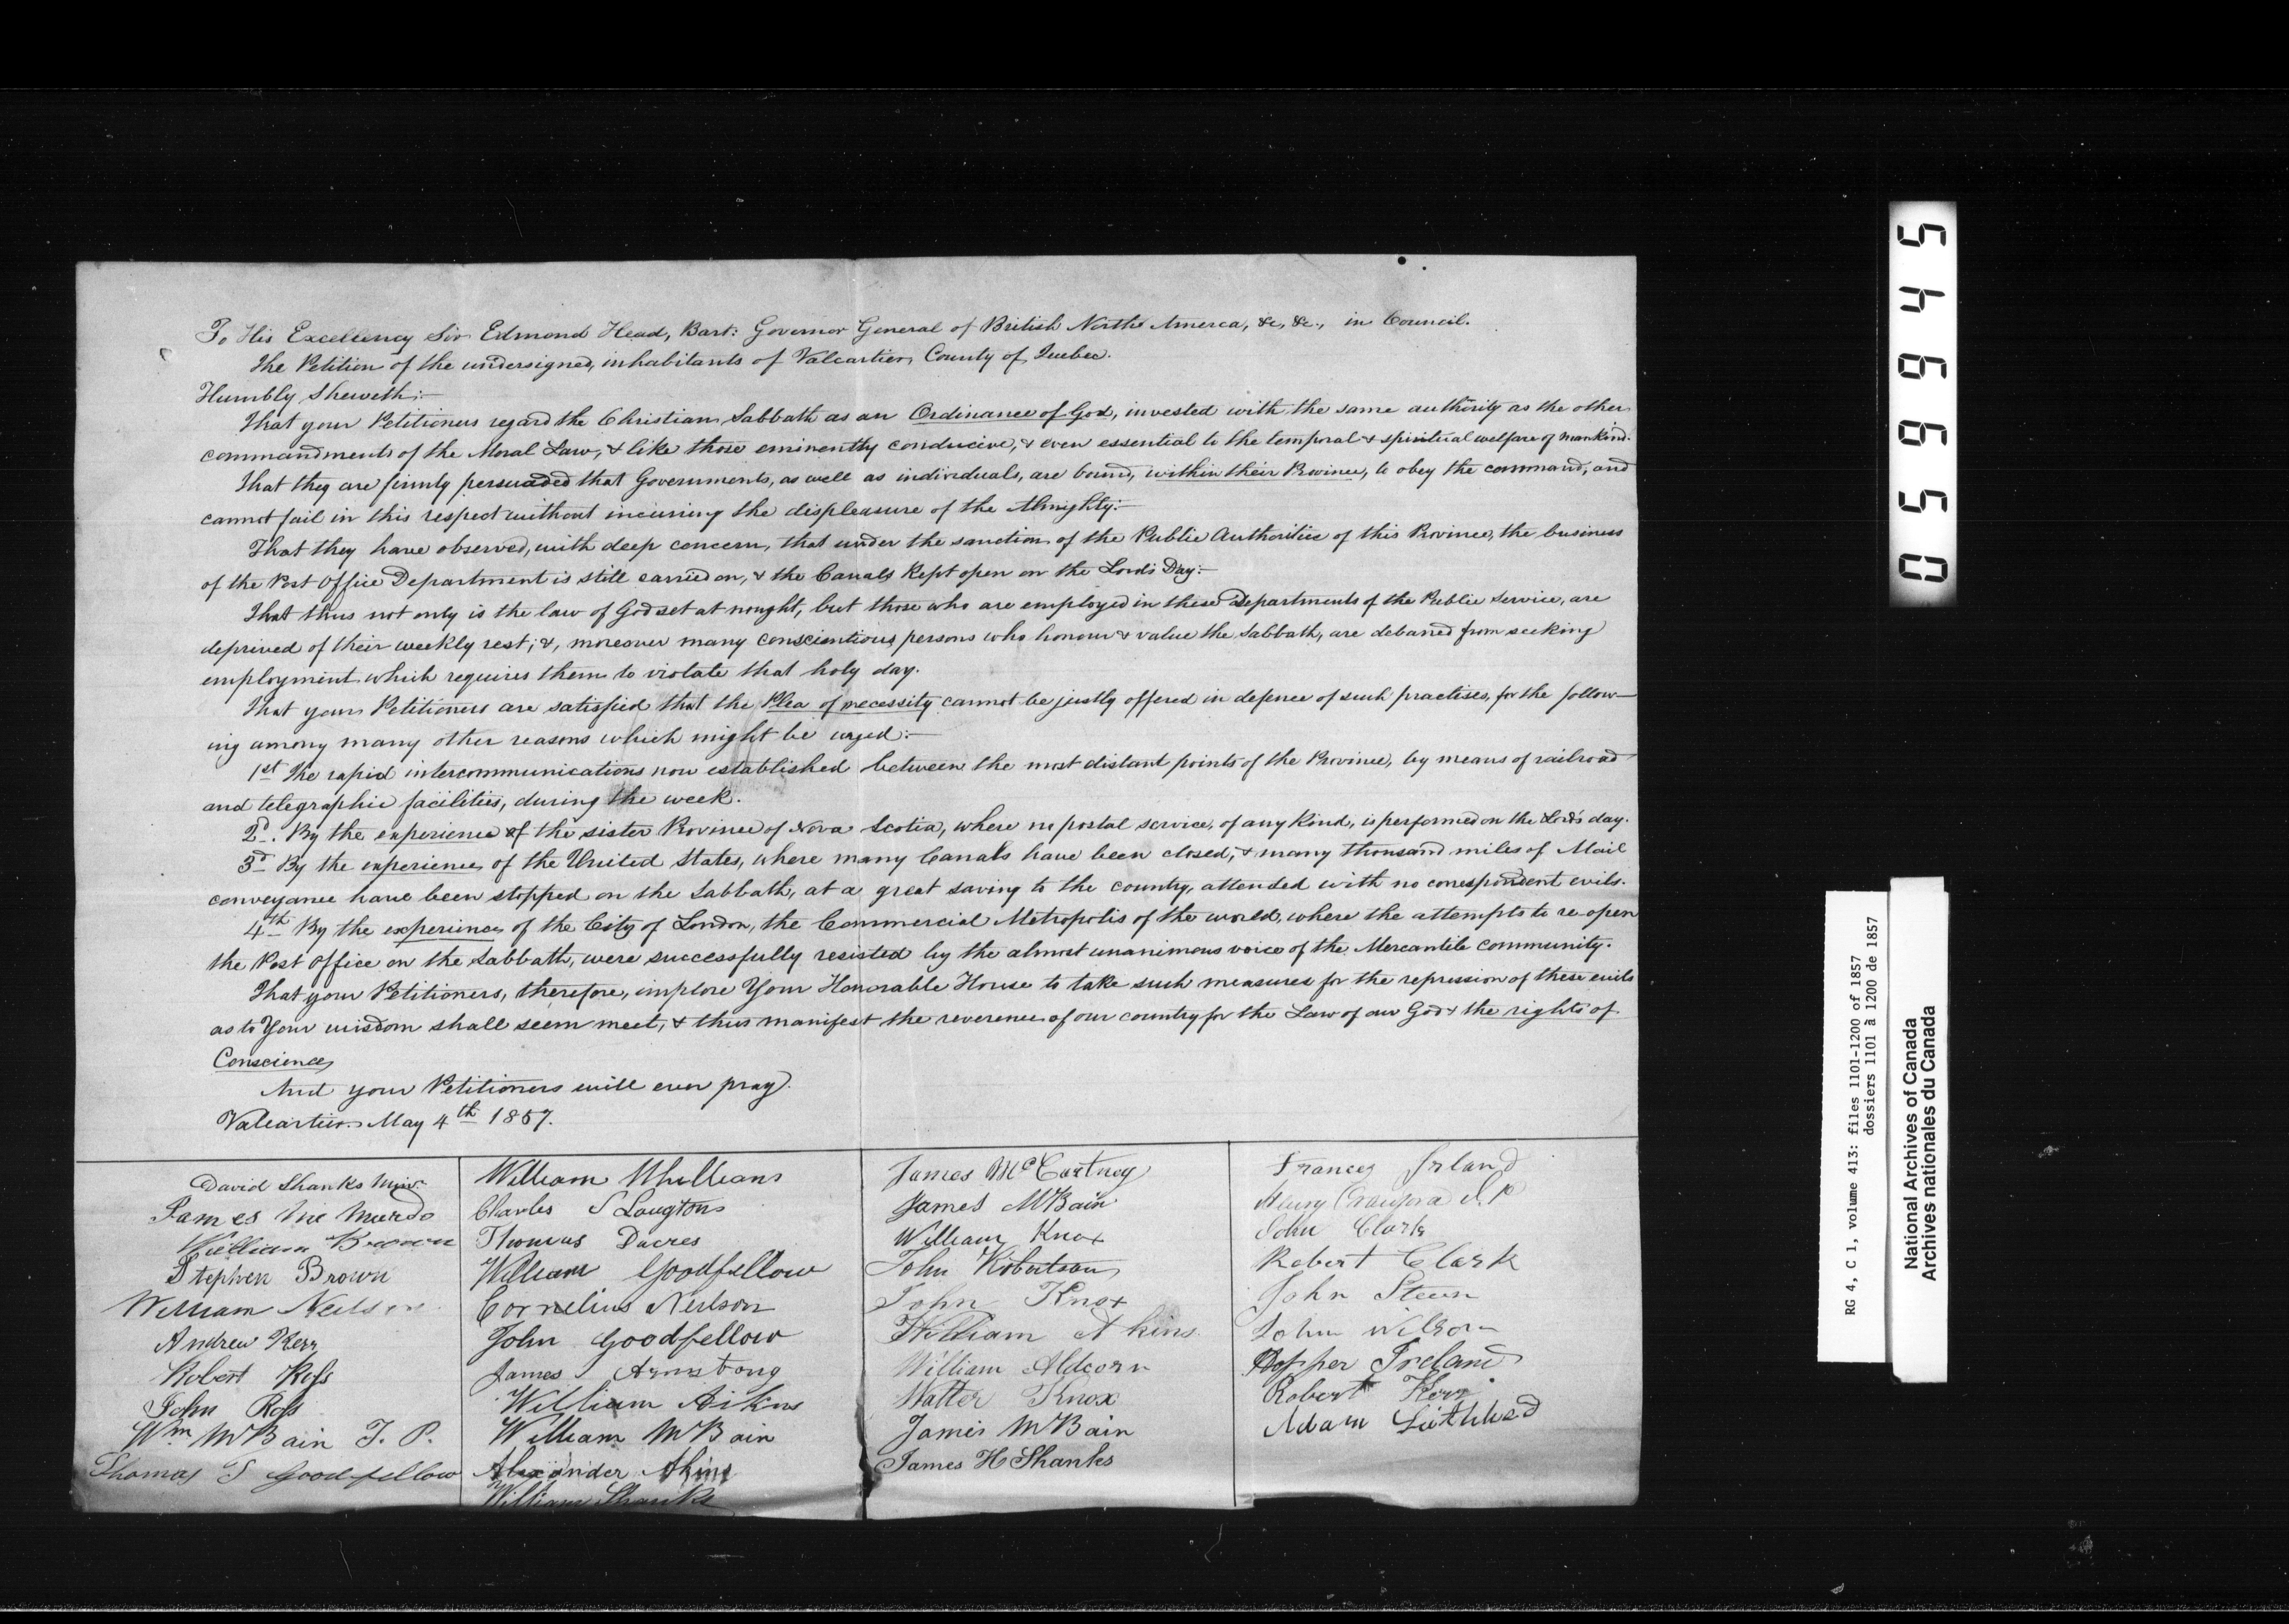 To His Excellency Sir Edmond Head, Bart: Governor General of British North America, &c, &c., in Council.
The Petition of the undersigned, inhabitants of Valcartier, County of Quebec.
Humbly Sheweth:—
That your Petitioners regard the Christian Sabbath as an Ordinance of God, invested with the same authority as the other
commandments of the Moral Law, & like those eminently conducive, & even essential to the temporal & spiritual welfare of mankind.
That they are firmly persuaded that Governments, as well as individuals, are bound, within their Province, to obey the command, and
cannot fail in this respect without incuring the displeasure of the Almighty:—
That they have observed, with deep concern, that under the sanction of the Public Authorities of this Province, the business
of the Post Office Department is still carried on, & the Canals Kept open on the Lord's Day:—
That thus not only is the law of God set at nought, but those who are employed in these Departments of the Public Service, are
deprived of their weekly rest; &, moreover many conscientious persons who honour & value the Sabbath, are debarred from seeking
employment which requires them to violate that holy day.
That your Petitioners are satisfied that the Plea of necessity cannot be justly offered in defence of such practises, for the follow—
ing among many other reasons which might be urged:—
1st The rapid intercommunications now established between the most distant points of the Province, by means of railroad
and telegraphic facilities, during the week.
2d. By the experience of the sister Province of Nova Scotia, where no postal service, of any Kind, is performed on the Lord's day.
3d By the experience of the United States, where many Canals have been closed, & many thousand miles of Mail
conveyance have been stopped on the Sabbath, at a great saving to the country, attended with no correspondent evils.
4th By the experience of the City of London, the Commercial Metropolis of the world, where the attempts to re-open
the Post Office on the Sabbath, were successfully resisted by the almost unanimous voice of the Mercantile Community.
That your Petitioners, therefore, implore Your Honorable House to take such measures for the repression of these evils
as to Your wisdom shall seem meet, & thus manifest the reverence of our country for the Law of our God & the rights of
Conscience
And your Petitioners will ever pray.
Valcartier May 4th 1857.
David Shanks Minr.
James Mc Murdo
William Brown
Stephen Brown
William Neilson
Andrew Kerr
Robert Ross
John Ross
Wm McBain J. P.
Thomas S Goodfellow
William Whillians
Charles S Langton
Thomas Dacres
William Goodfellow
Cornelius Neilson
John Goodfellow
James Armstrong
William Aikins
William McBain
Alexander Akins
William Shanks
James McCartney
James McBain
William Knox
John Robertson
John Knox
William Akins
William Aldcorn
Walter Knox
James McBain
James H Shanks
Frances Irland
Henry Crawford J. P
John Clark
Robert Clark
John Steen
John Wilson
Hopper Ireland
Robert Kerr
Adam
059945
RG 4, C 1, volume 413: files 1101-1200 of 1857
dossiers 1101 à 1200 de 1857
National Archives of Canada
Archives nationales du Canada